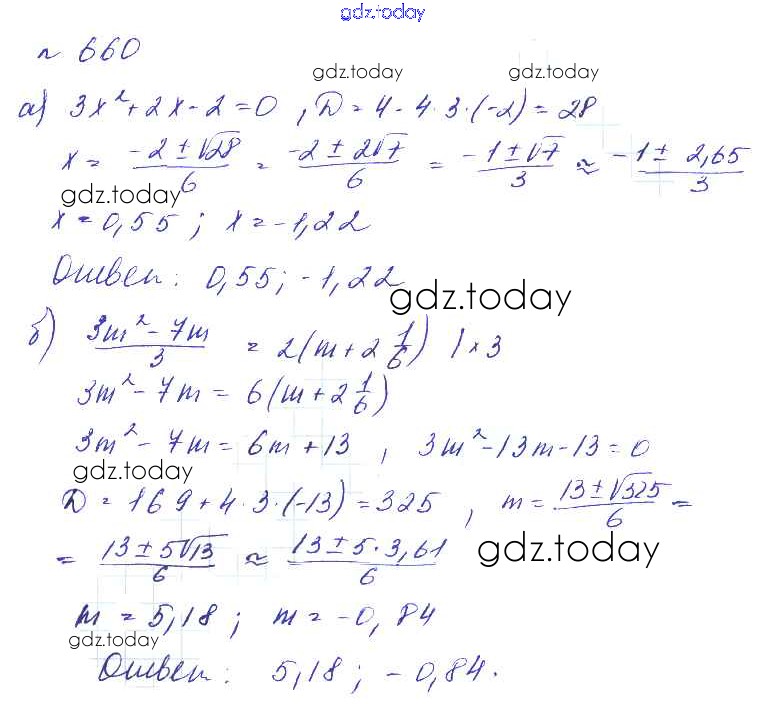 gdz.today
№ 660
gdz.today
а) 3x² + 2x - 2 = 0 , D = 4 - 4·3·(-2) = 28
x = (-2 ± √28)/6 = (-2 ± 2√7)/6 = (-1 ± √7)/3 ≈ (-1 ± 2,65)/3
gdz.today
x = 0,55 ; x = -1,22
Ответ: 0,55; -1,22
gdz.today
б) (3m² - 7m)/3 = 2(m + 2 1/6) | × 3
3m² - 7m = 6(m + 2 1/6)
3m² - 7m = 6m + 13 , 3m² - 13m - 13 = 0
gdz.today
D = 169 + 4·3·(-13) = 325 , m = (13 ± √325)/6 =
= (13 ± 5√13)/6 ≈ (13 ± 5·3,61)/6
gdz.today
m = 5,18 ; m = -0,84
gdz.today
Ответ: 5,18 ; -0,84.